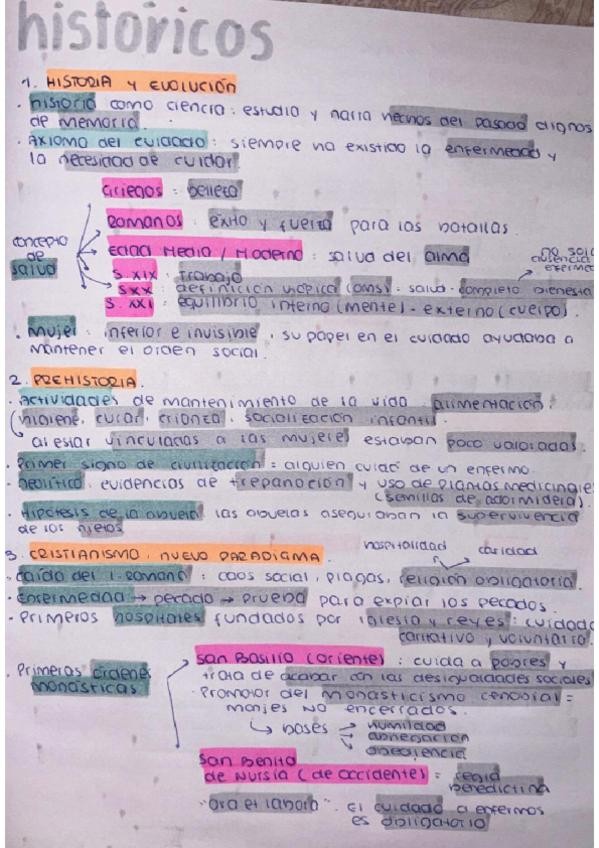 históricos
1. HISTORIA y EVOLUCIÓN
· historia como ciencia: estudio y narra hechos del pasado dignos
de memoria.
· Axioma del cuidado: siempre ha existido la enfermedad y
la necesidad de cuidar
Griegos: belleza
Romanos: éxito y fuerza para las batallas.
concepto de salud
Edad Media / Moderna: salud del alma
no solo ausencia enfermed
S. XIX: trabajo
S XX: definición utópica (OMS): salud - completo bienesta
S. XXI: equilibrio interno (mente) - externo (cuerpo).
· Mujer: inferior e invisible, su papel en el cuidado ayudaba a
mantener el orden social.
2. PREHISTORIA.
· Actividades de mantenimiento de la vida: alimentación,
higiene, curar, crianza, socialización infantil.
al estar vinculadas a las mujeres estaban poco valoradas.
· Primer signo de civilización = alguien cuidó de un enfermo.
· neolítico: evidencias de trepanación y uso de plantas medicinale
(semillas de adormidera).
· Hipótesis de la abuela: las abuelas aseguraban la supervivencia
de los nietos
3. CRISTIANISMO, NUEVO PARADIGMA.
hospitalidad caridad
· caída del I. romano: caos social, plagas, religión obligatoria.
· Enfermedad → pecado → prueba para expiar los pecados.
· Primeros hospitales fundados por iglesia y reyes: cuidado
caritativo y voluntario.
San Basilio (oriente): cuida a pobres y
trata de acabar con las desigualdades sociales
· Primeras órdenes
monásticas
Promotor del monasticismo cenobial =
monjes NO encerrados.
↳ bases → humildad
→ abnegación
→ obediencia
San Benito
de Nursia (de occidente) = regla
benedictina
"ora et labora". El cuidado a enfermos
es obligatorio